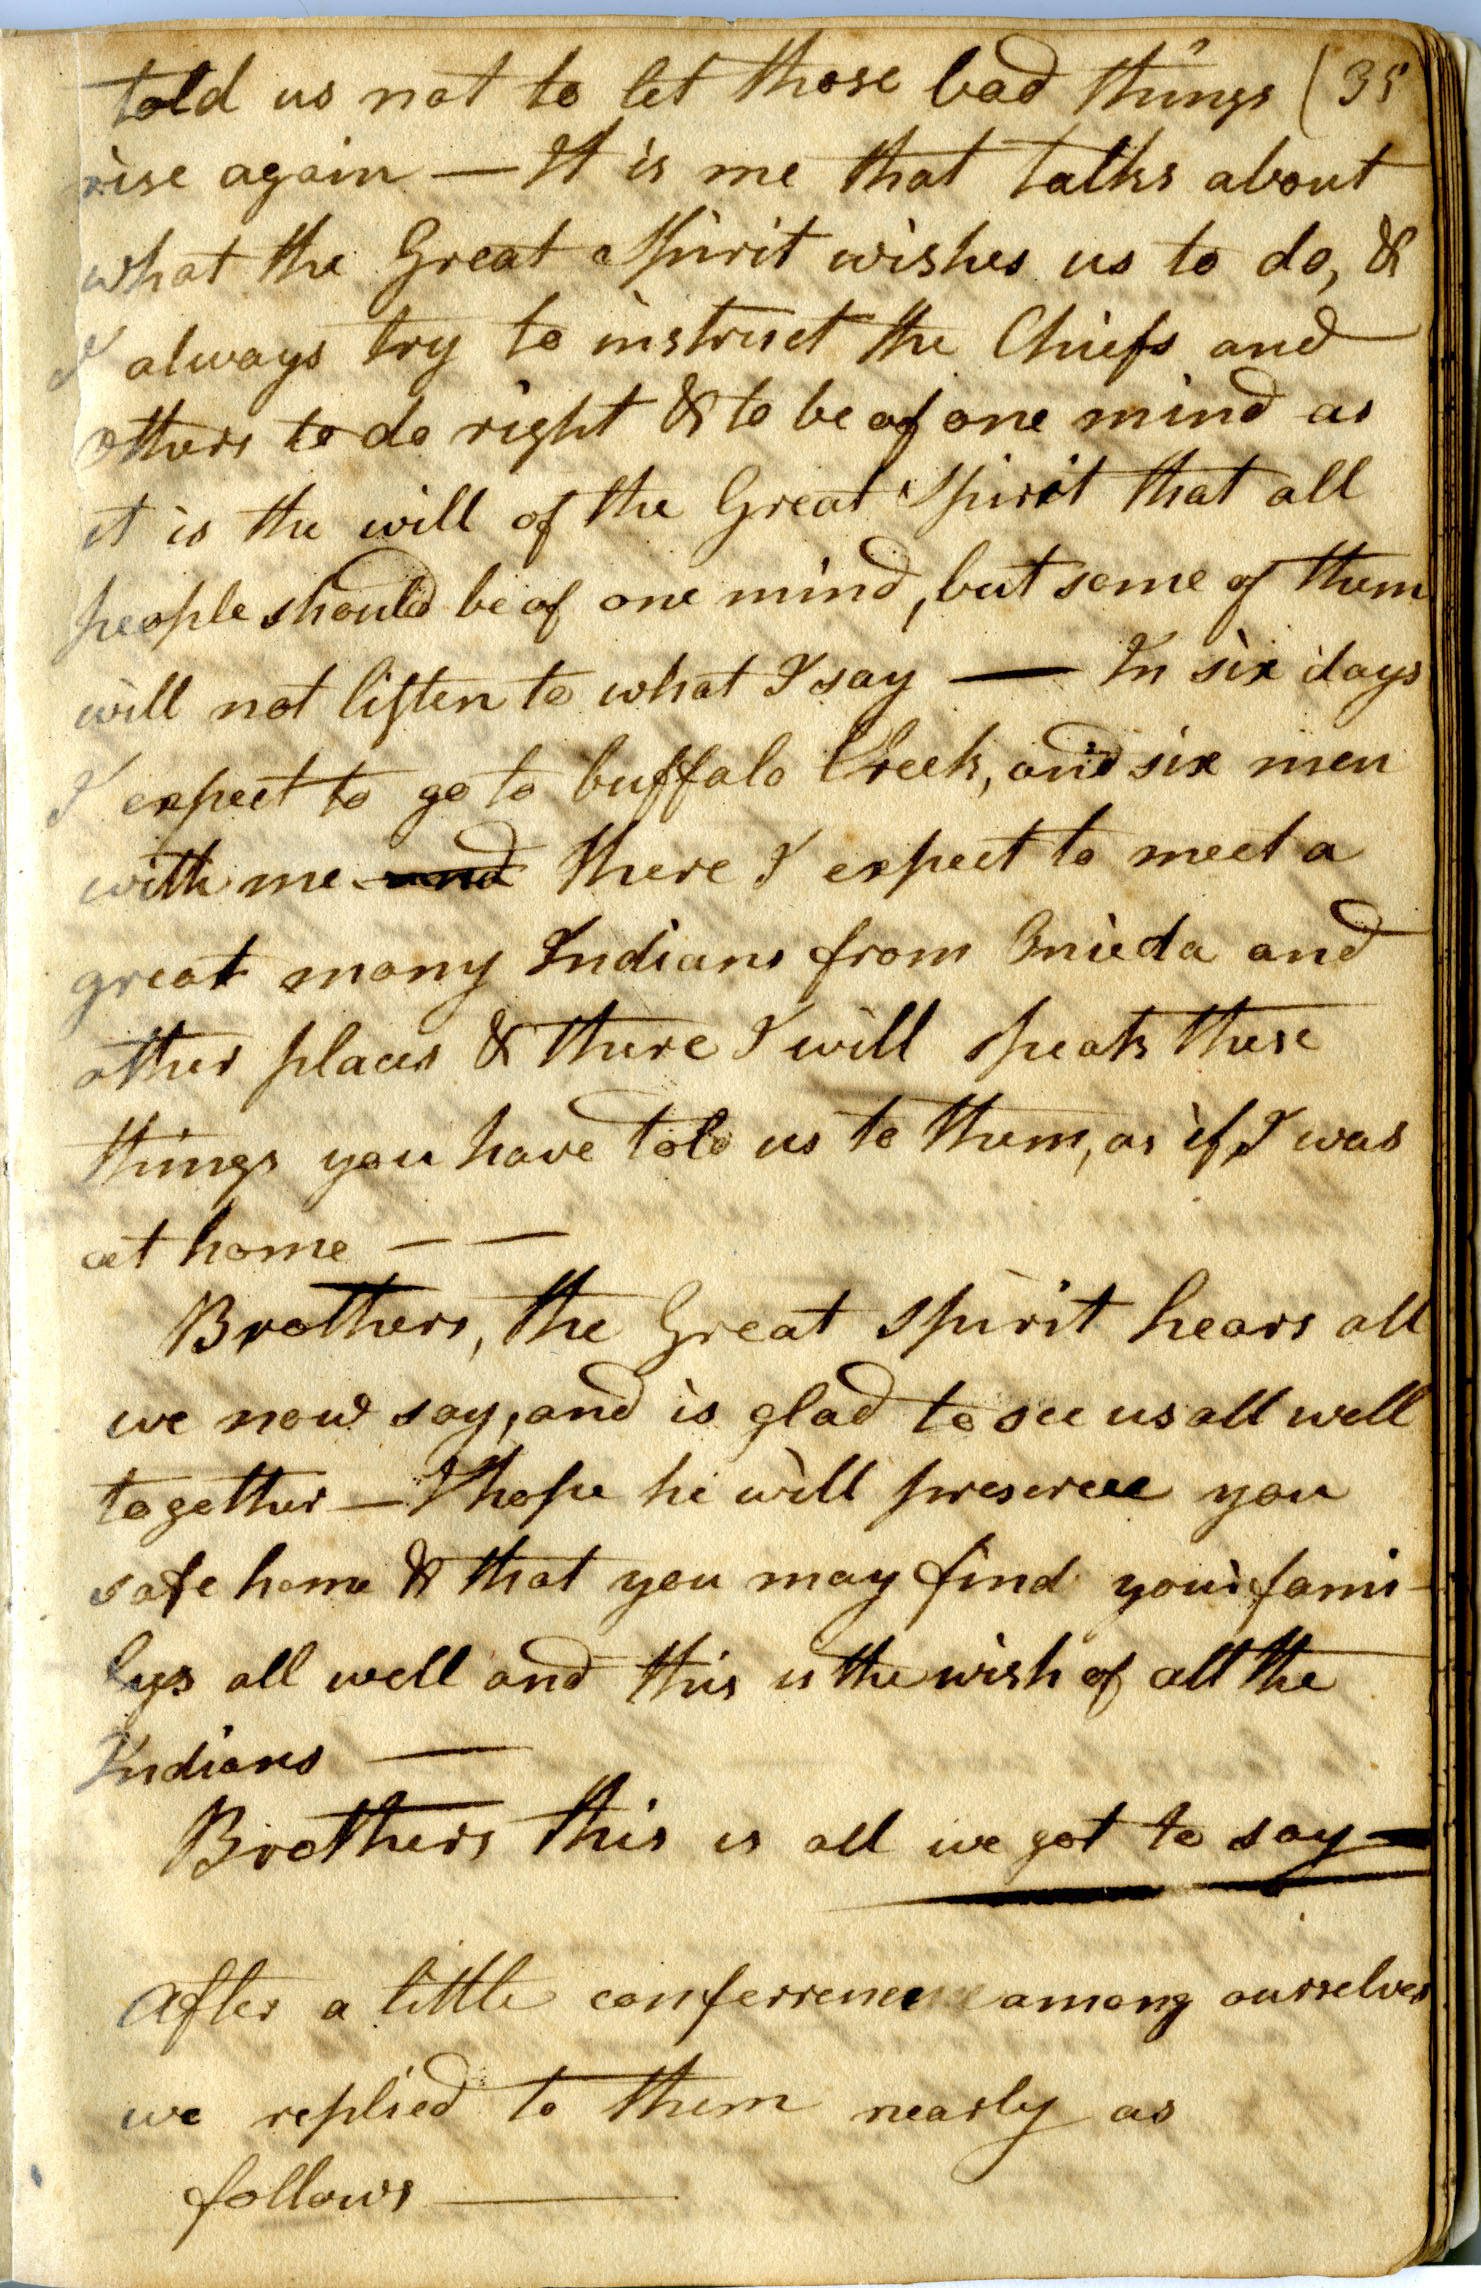 told us not to let those bad things (35
rise again — It is me that talks about
what the Great Spirit wishes us to do, &
I always try to instruct the Chiefs and
others to do right & to be of one mind as
it is the will of the Great Spirit that all
people should be of one mind, but some of them
will not listen to what I say — In six days
I expect to go to buffalo Creek, and six men
with me and there I expect to meet a
great many Indians from Onieda and
other places & there I will speak these
things you have told us to them, as if I was
at home — —
Brothers, the Great Spirit hears all
we now say, and is glad to see us all well
together — I hope he will preserve you
safe home & that you may find your fami-
lys all well and this is the wish of all the
Indians —
Brothers this is all we got to say —
After a little conferrence among ourselves
we replied to them nearly as
follows —